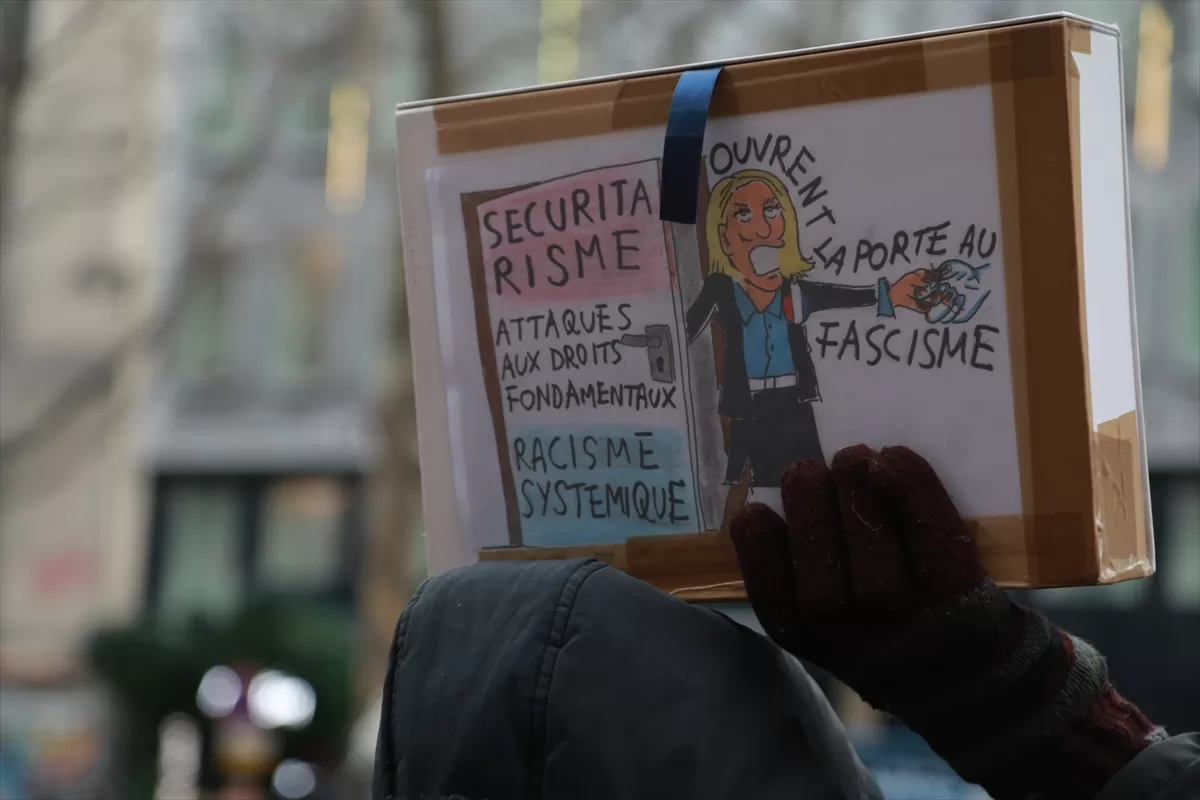 SECURITA
RISME
ATTAQUES
AUX DROITS
FONDAMENTAUX
RACISME
SYSTEMIQUE
OUVRENT
LA PORTE AU
FASCISME